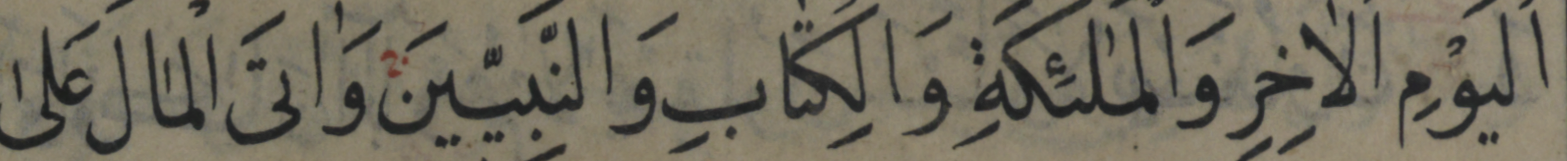 الْيَوْمِ الْاٰخِرِ وَالْمَلٰئِكَةِ وَالْكِتٰابِ وَالنَّبِيّٖينَ وَاٰتَى الْمٰالَ عَلٰى